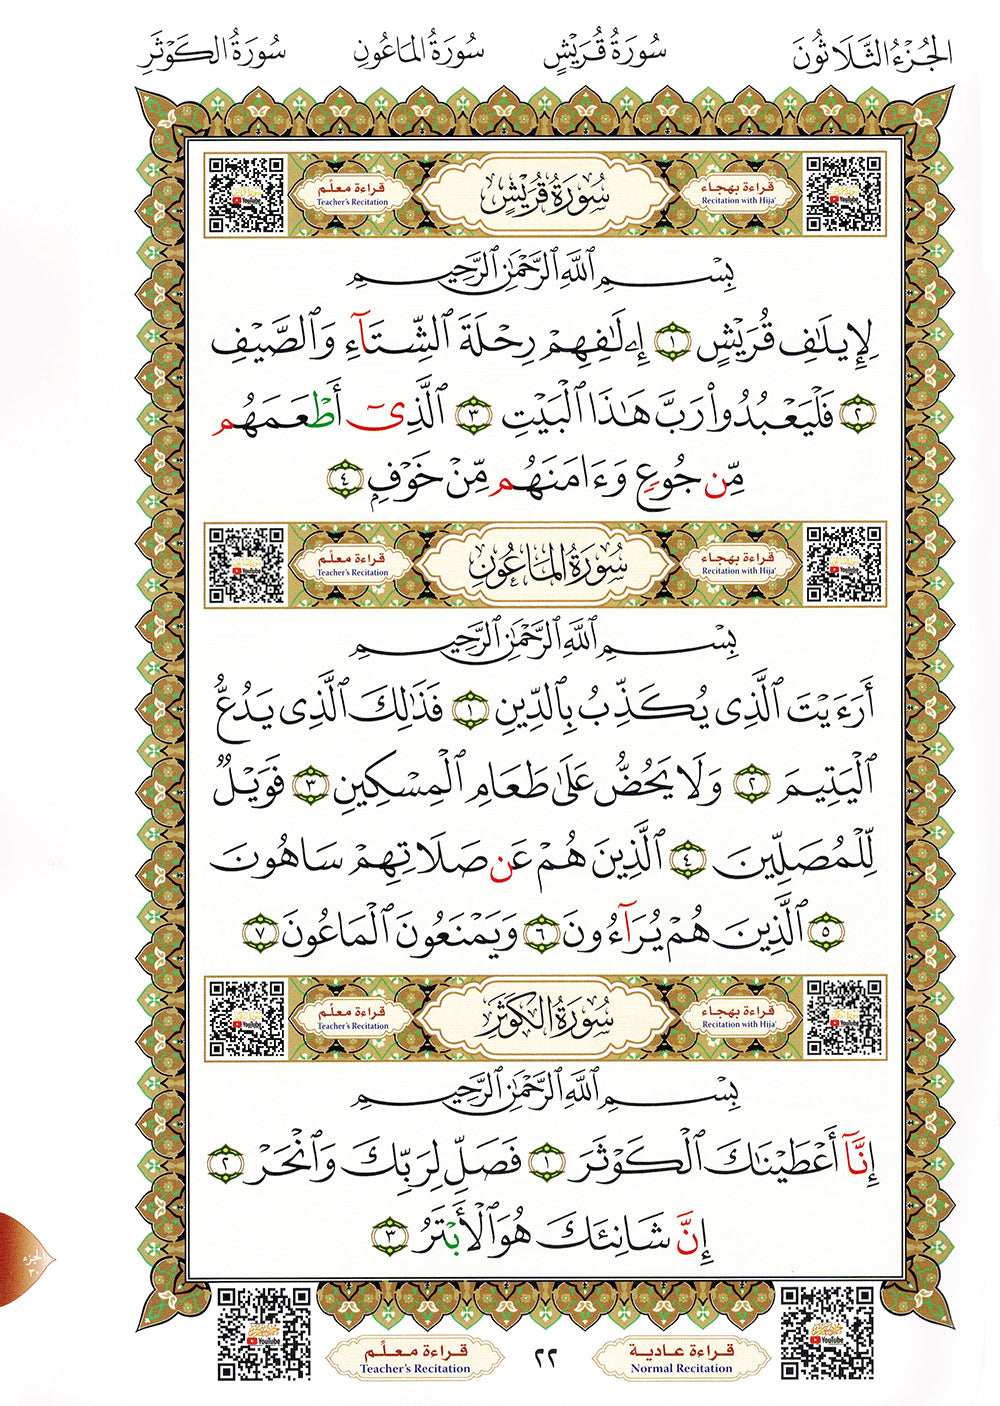 الجُزْءُ الثَّلَاثُونَ سُورَةُ قُرَيْشٍ سُورَةُ المَاعُونِ سُورَةُ الكَوْثَرِ
قراءة بهجاء سُورَةُ قُرَيْشٍ قراءة معلّم
Recitation with Hija' Teacher's Recitation
YouTube YouTube
بِسْمِ ٱللَّهِ ٱلرَّحْمَٰنِ ٱلرَّحِيمِ
لِإِيلَٰفِ قُرَيْشٍ ١ إِۦلَٰفِهِمْ رِحْلَةَ ٱلشِّتَآءِ وَٱلصَّيْفِ
٢ فَلْيَعْبُدُوا۟ رَبَّ هَٰذَا ٱلْبَيْتِ ٣ ٱلَّذِىٓ أَطْعَمَهُم
مِّن جُوعٍ وَءَامَنَهُم مِّنْ خَوْفٍۭ ٤
قراءة بهجاء سُورَةُ المَاعُونِ قراءة معلّم
Recitation with Hija' Teacher's Recitation
YouTube YouTube
بِسْمِ ٱللَّهِ ٱلرَّحْمَٰنِ ٱلرَّحِيمِ
أَرَءَيْتَ ٱلَّذِى يُكَذِّبُ بِٱلدِّينِ ١ فَذَٰلِكَ ٱلَّذِى يَدُعُّ
ٱلْيَتِيمَ ٢ وَلَا يَحُضُّ عَلَىٰ طَعَامِ ٱلْمِسْكِينِ ٣ فَوَيْلٌ
لِّلْمُصَلِّينَ ٤ ٱلَّذِينَ هُمْ عَن صَلَاتِهِمْ سَاهُونَ
٥ ٱلَّذِينَ هُمْ يُرَآءُونَ ٦ وَيَمْنَعُونَ ٱلْمَاعُونَ ٧
قراءة بهجاء سُورَةُ الكَوْثَرِ قراءة معلّم
Recitation with Hija' Teacher's Recitation
YouTube YouTube
بِسْمِ ٱللَّهِ ٱلرَّحْمَٰنِ ٱلرَّحِيمِ
إِنَّآ أَعْطَيْنَٰكَ ٱلْكَوْثَرَ ١ فَصَلِّ لِرَبِّكَ وَٱنْحَرْ ٢
إِنَّ شَانِئَكَ هُوَ ٱلْأَبْتَرُ ٣
الجزء
٣٠
YouTube YouTube
قراءة عادية ٢٢ قراءة معلّم
Normal Recitation Teacher's Recitation